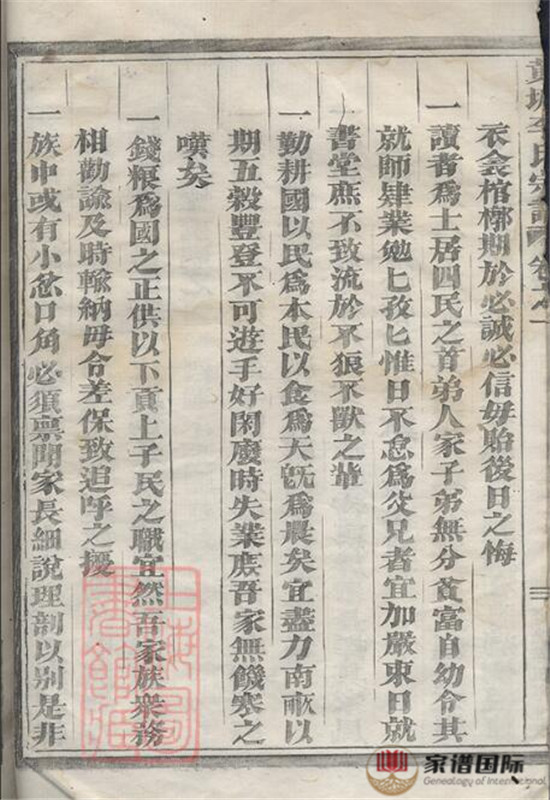 衣衾棺槨期於必誠必信毋貽後日之悔
一讀者爲士居四民之首弟人家子弟無分貧富自幼令其
就師肄業勉匕孜匕惟日不怠爲父兄者宜加嚴束日就
書堂庶不致流於不狼不獸之輩
一勤耕國以民爲本民以食爲天旣爲農矣宜盡力南畝以
期五穀豐登不可遊手好閑廢時失業庶吾家無饑寒之
嘆矣
一錢粮爲國之正供以下貢上子民之職宜然吾家族衆務
相勸諭及時輸納毋令差保致追呼之擾
一族中或有小忿口角必須禀開家長細說理剖以別是非
氏宗譜
家谱国际
Genealogy of International